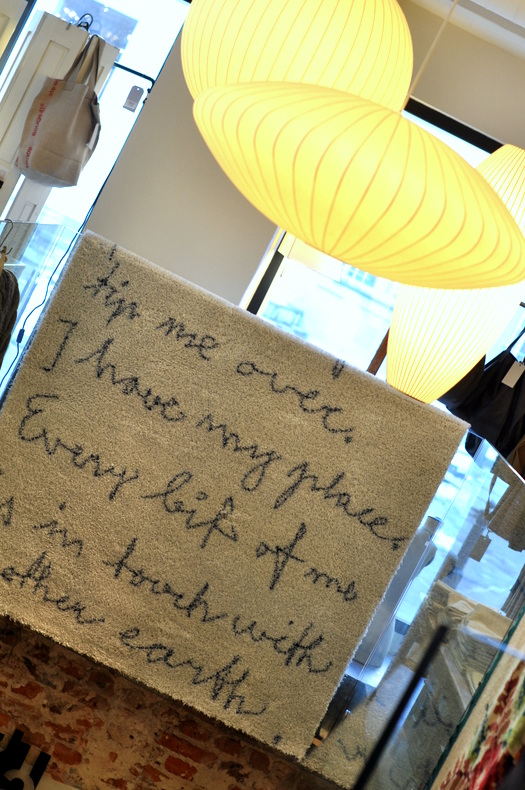 tip me over.
I have my place.
Every bit of me
s in touch with
other earth.